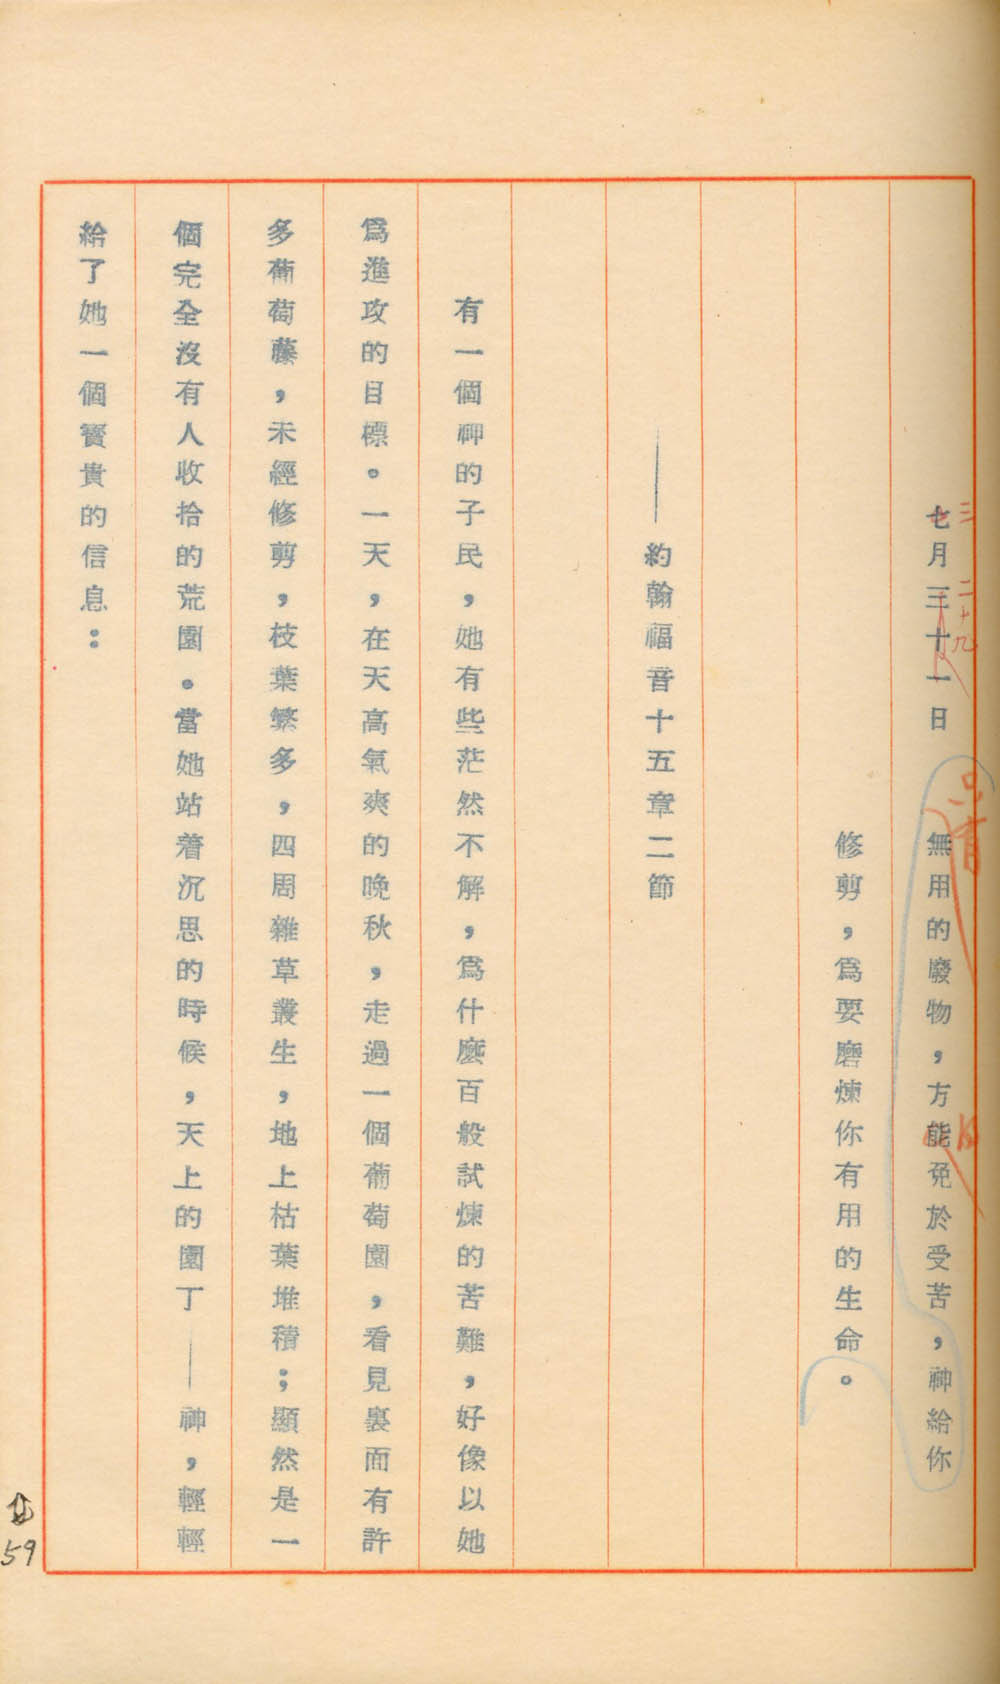 七月三十一日 無用的廢物，方能免於受苦，神給你
三 二十九
只有
修剪，為要磨煉你有用的生命。
——約翰福音十五章二節
有一個神的子民，她有些茫然不解，為什麼百般試煉的苦難，好像以她
為進攻的目標。一天，在天高氣爽的晚秋，走過一個葡萄園，看見裏面有許
多葡萄藤，未經修剪，枝葉繁多，四周雜草叢生，地上枯葉堆積；顯然是一
個完全沒有人收拾的荒園。當她站着沉思的時候，天上的園丁——神，輕輕
給了她一個寶貴的信息：
59